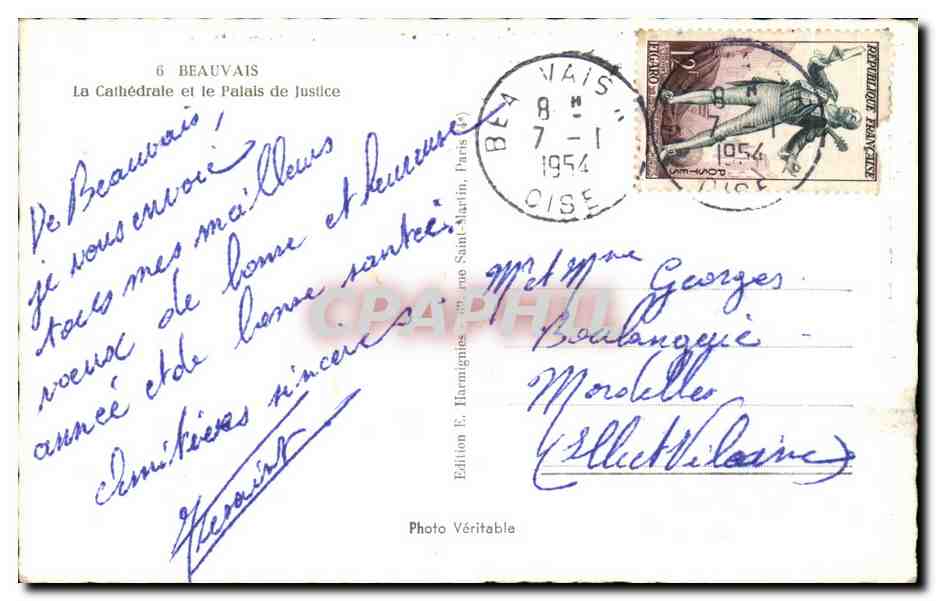 6 BEAUVAIS
La Cathédrale et le Palais de Justice
De Beauvais,
je vous envoie
tous mes meilleurs
voeux de bonne et heureuse
année et de bonne santée.
Amitiées sincères
Edition E. Harmignies, rue Saint-Martin, Paris (4e)
BEAUVAIS
8 H
7 - 1
1954
OISE
12F
FIGARO
POSTES
RÉPUBLIQUE FRANÇAISE
8 H
7 - 1
1954
OISE
Mr et Mme Georges
Boulangerie
Mordelles
(Ille et Vilaine)
CPAPHIL
Photo Véritable